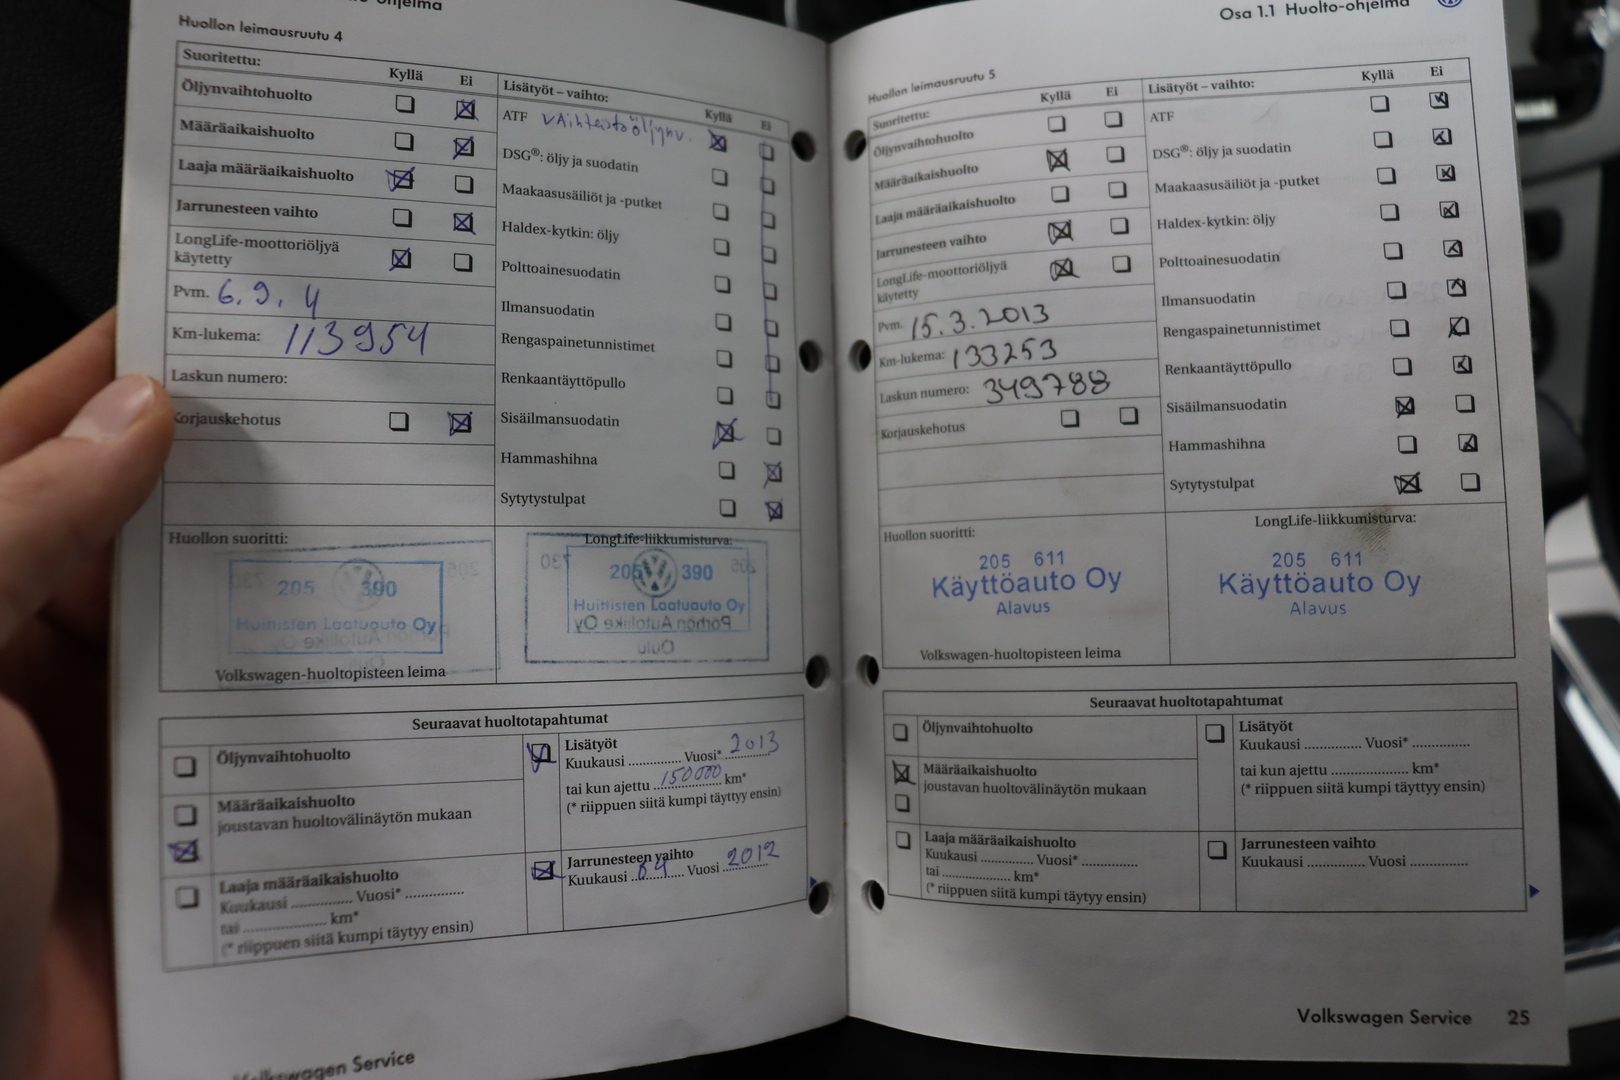 Huollon leimausruutu 4
Suoritettu: Kyllä Ei
Öljynvaihtohuolto
Määräaikaishuolto
Laaja määräaikaishuolto
Jarrunesteen vaihto
LongLife-moottoriöljyä
käytetty
Pvm. 6.9.
Km-lukema: 113954
Laskun numero:
Korjauskehotus
Lisätyöt – vaihto: Kyllä Ei
ATF
DSG®: öljy ja suodatin
Maakaasusäiliöt ja -putket
Haldex-kytkin: öljy
Polttoainesuodatin
Ilmansuodatin
Rengaspainetunnistimet
Renkaantäyttöpullo
Sisäilmansuodatin
Hammashihna
Sytytystulpat
Huollon suoritti:
205 390
Huittisten Laatuauto Oy
Volkswagen-huoltopisteen leima
LongLife-liikkumisturva:
205 390
Huittisten Laatuauto Oy
Seuraavat huoltotapahtumat
Öljynvaihtohuolto
Määräaikaishuolto
joustavan huoltovälinäytön mukaan
Laaja määräaikaishuolto
Kuukausi .............. Vuosi* ..............
tai .................... km*
(* riippuen siitä kumpi täytyy ensin)
Lisätyöt
Kuukausi .............. Vuosi* 2013
tai kun ajettu 150000 km*
(* riippuen siitä kumpi täyttyy ensin)
Jarrunesteen vaihto
Kuukausi 04 Vuosi 2012
Volkswagen Service
Osa 1.1 Huolto-ohjelma
Huollon leimausruutu 5
Suoritettu: Kyllä Ei
Öljynvaihtohuolto
Määräaikaishuolto
Laaja määräaikaishuolto
Jarrunesteen vaihto
LongLife-moottoriöljyä
käytetty
Pvm. 15.3.2013
Km-lukema: 133253
Laskun numero: 349788
Korjauskehotus
Lisätyöt – vaihto: Kyllä Ei
ATF
DSG®: öljy ja suodatin
Maakaasusäiliöt ja -putket
Haldex-kytkin: öljy
Polttoainesuodatin
Ilmansuodatin
Rengaspainetunnistimet
Renkaantäyttöpullo
Sisäilmansuodatin
Hammashihna
Sytytystulpat
Huollon suoritti:
205 611
Käyttöauto Oy
Alavus
Volkswagen-huoltopisteen leima
LongLife-liikkumisturva:
205 611
Käyttöauto Oy
Alavus
Seuraavat huoltotapahtumat
Öljynvaihtohuolto
Määräaikaishuolto
joustavan huoltovälinäytön mukaan
Laaja määräaikaishuolto
Kuukausi .............. Vuosi* ..............
tai .................... km*
(* riippuen siitä kumpi täytyy ensin)
Lisätyöt
Kuukausi .............. Vuosi* ..............
tai kun ajettu .................... km*
(* riippuen siitä kumpi täyttyy ensin)
Jarrunesteen vaihto
Kuukausi .............. Vuosi ..............
Volkswagen Service 25